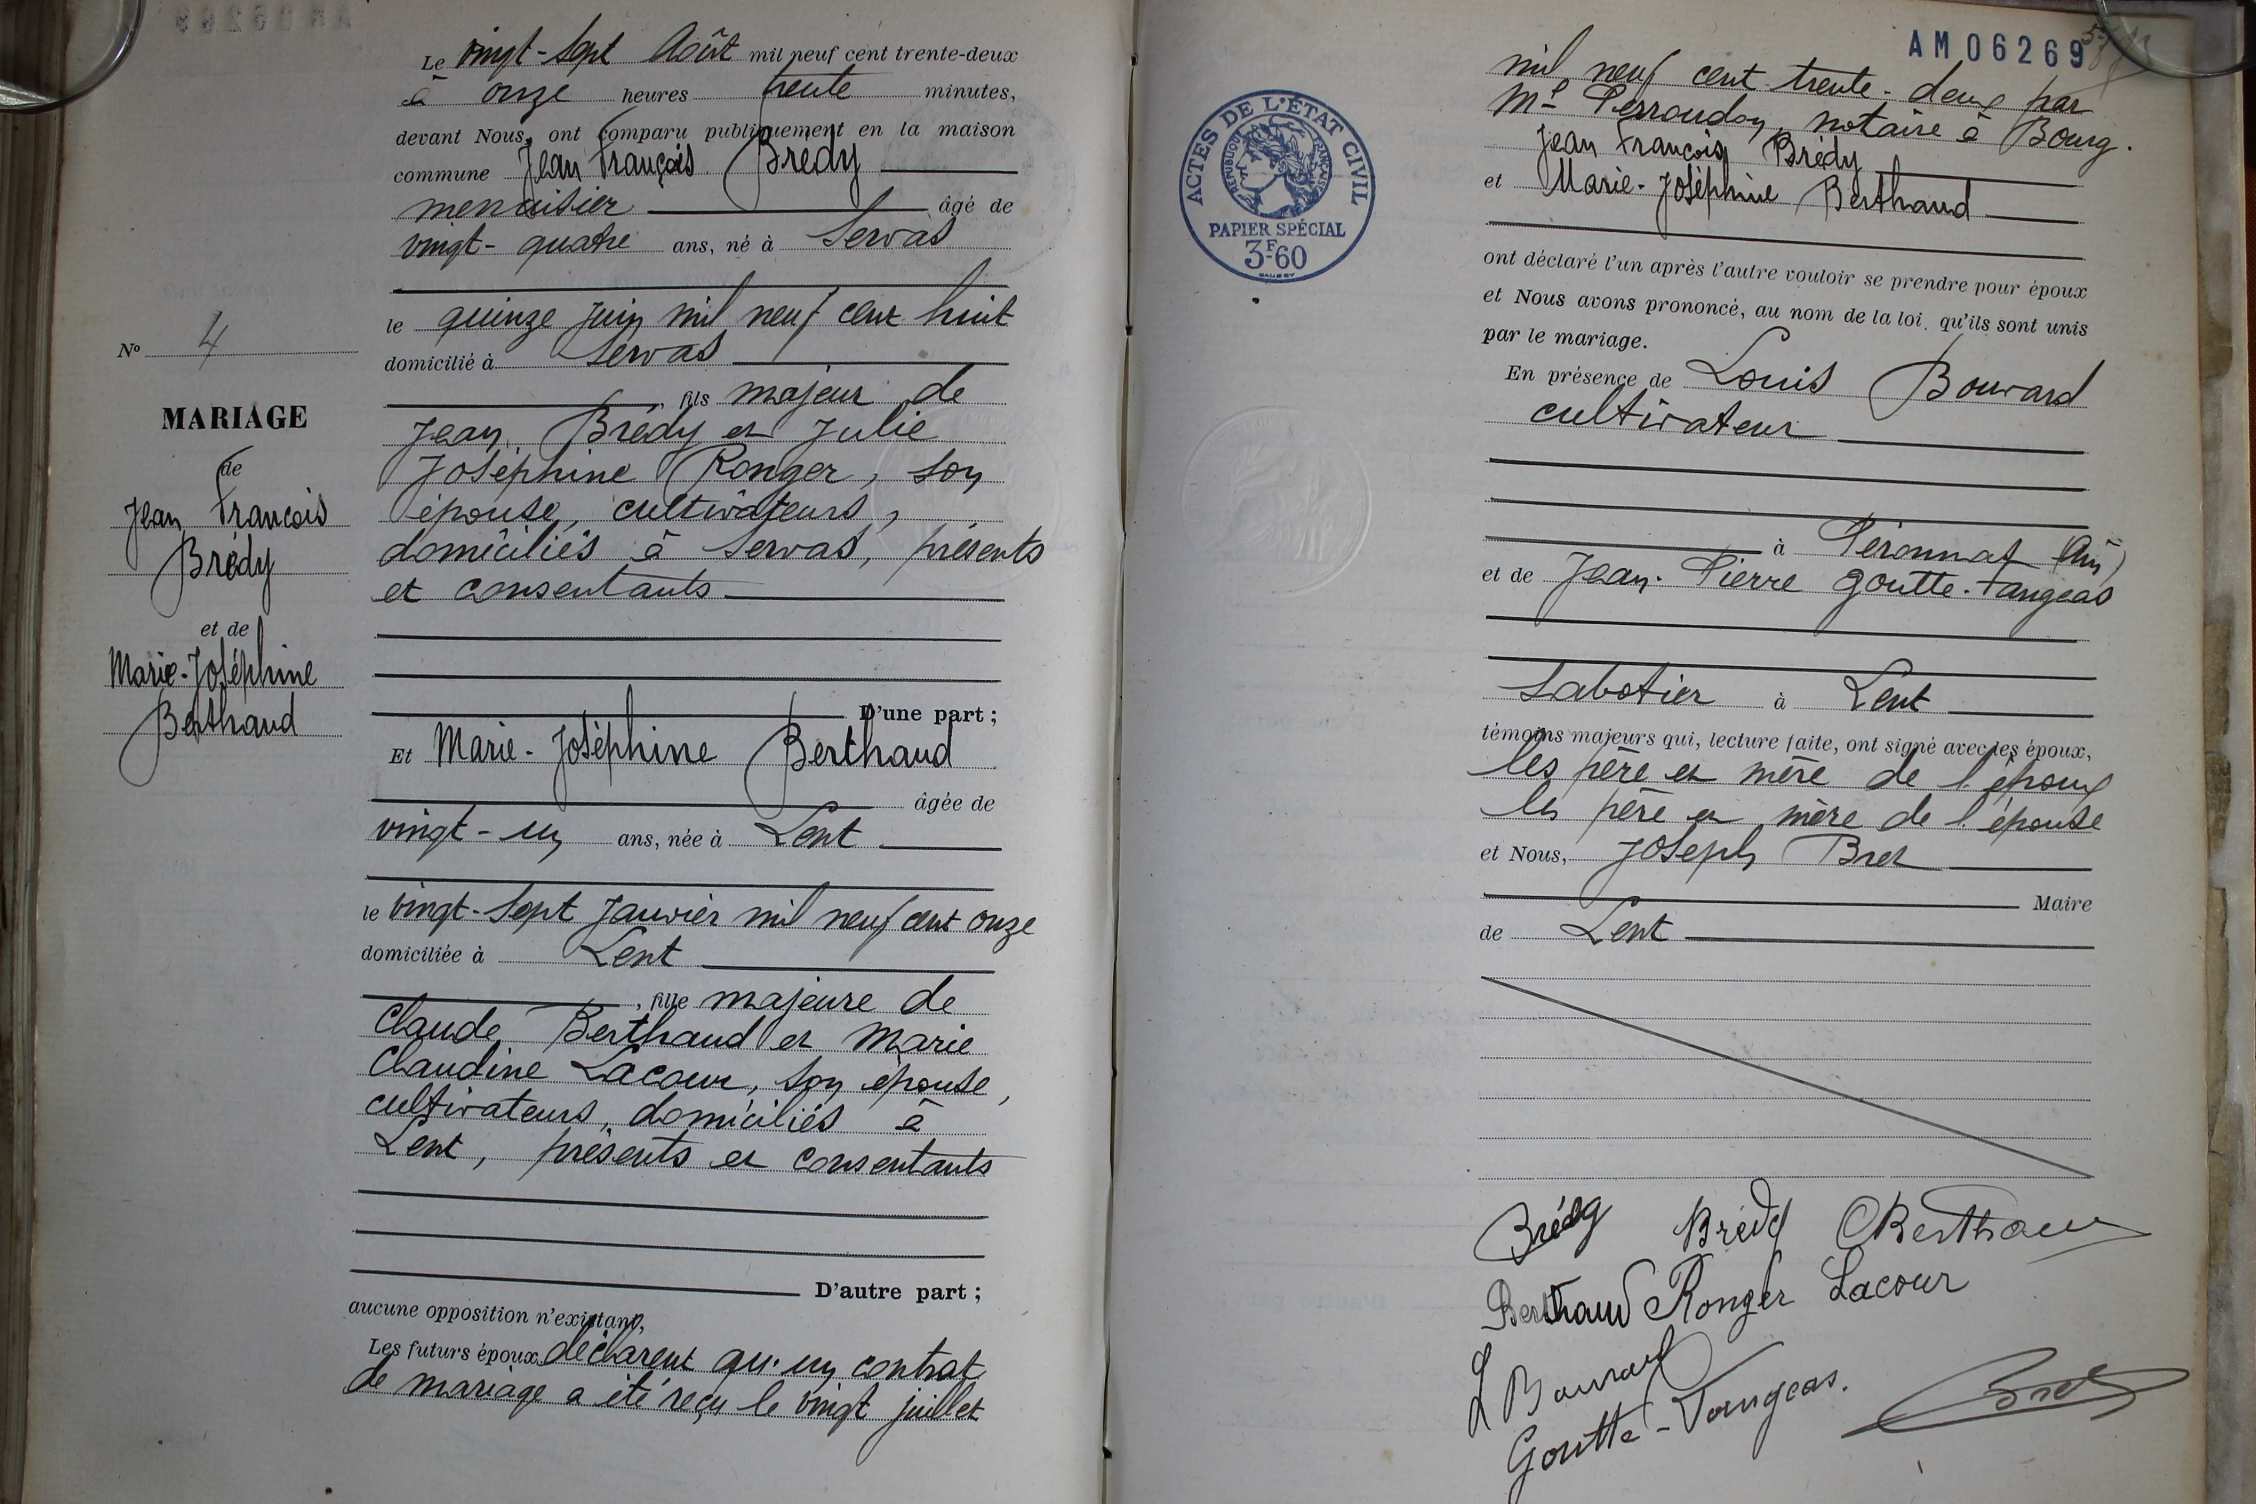 N° 4
MARIAGE
de
Jean François
Brédy
et de
Marie-Joséphine
Berthaud
Le vingt-sept Août mil neuf cent trente-deux
à onze heures trente minutes,
devant Nous, ont comparu publiquement en la maison
commune Jean François Brédy
menuisier âgé de
vingt-quatre ans, né à Servas
le quinze juin mil neuf cent huit
domicilié à Servas
fils majeur de
Jean Brédy et Julie
Joséphine Ronger, son
épouse, cultivateurs,
domiciliés à Servas, présents
et consentants
D'une part ;
Et Marie-Joséphine Berthaud
âgée de
vingt-un ans, née à Lent
le vingt-sept janvier mil neuf cent onze
domiciliée à Lent
, fille majeure de
Claude Berthaud et Marie
Claudine Lacour, son épouse,
cultivateurs, domiciliés à
Lent, présents et consentants
D'autre part ;
aucune opposition n'existant,
Les futurs époux déclarent qu'un contrat
de mariage a été reçu le vingt juillet
AM06269
mil neuf cent trente-deux par
Me Perroudon, notaire à Bourg.
Jean François Brédy
et Marie-Joséphine Berthaud
ACTES DE L'ÉTAT CIVIL
RÉPUBLIQUE FRANÇAISE
PAPIER SPÉCIAL
3F60
ont déclaré l'un après l'autre vouloir se prendre pour époux
et Nous avons prononcé, au nom de la loi, qu'ils sont unis
par le mariage.
En présence de Louis Bouvard
cultivateur
à Péronnas (Ain)
et de Jean-Pierre Goutte-Fangeas
sabotier à Lent
témoins majeurs qui, lecture faite, ont signé avec les époux,
les père et mère de l'époux
les père et mère de l'épouse
et Nous, Joseph Bret
Maire
de Lent
Brédy Brédy CBerthaud
Berthaud Ronger Lacour
L Bouvard
Goutte-Fangeas. Bret